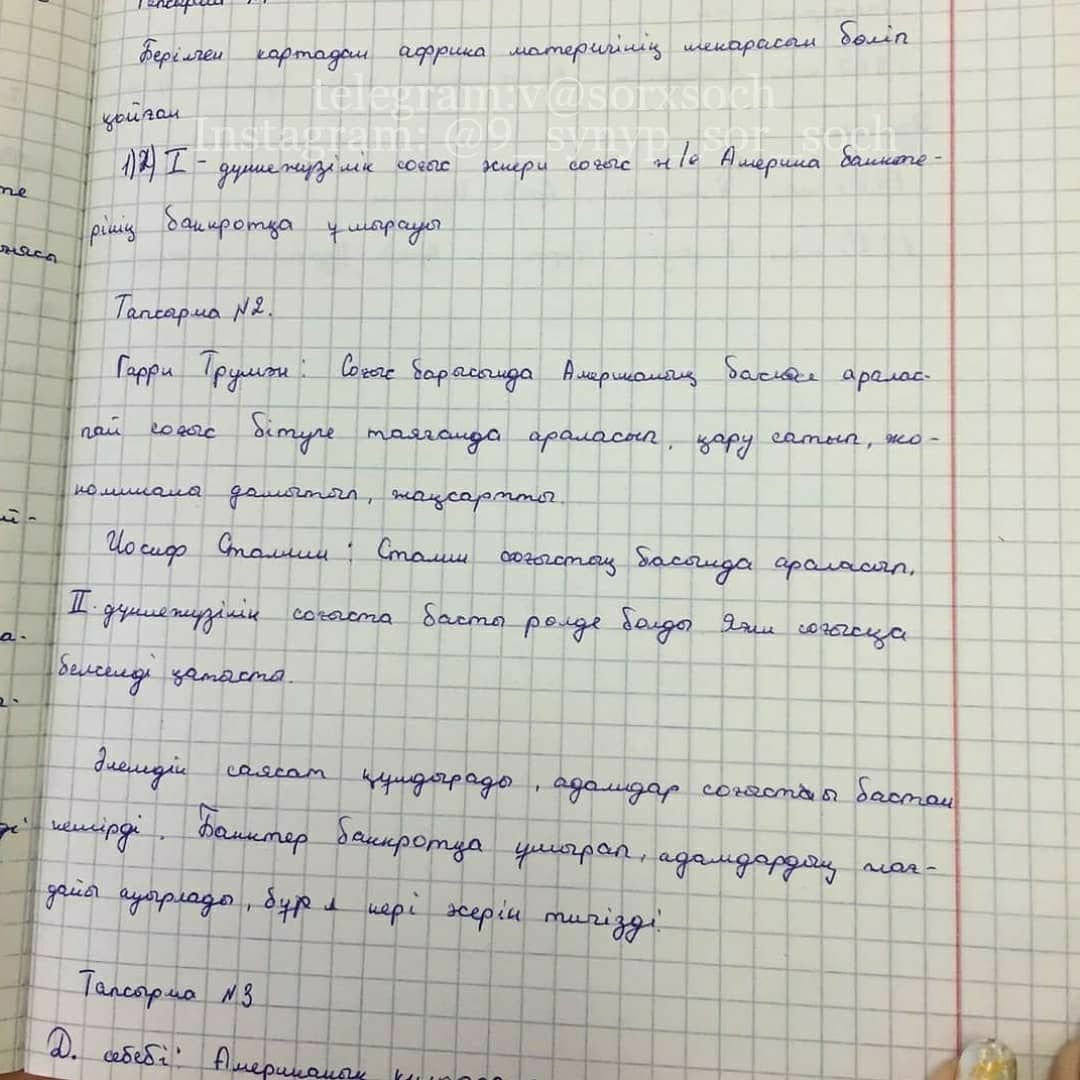 Берілген картадан африка материгінің шекарасын бөліп
telegram:v@sorxsoch
қойған
Instagram: @9_synyp_sor_soch
1) 2) I - дүниежүзілік соғыс әсері соғыс н/е Америка банкте-
рінің банкротқа ұшырауы
Тапсарма №2.
Гарри Трумэн: Соғыс барысында Американың аралас-
пай соғыс бітуге таяғанда араласып, қару сатып, эко-
номикана дамытып, жақсартты.
Иосиф Сталин: Сталин соғыстың басында араласып,
II-дүниежүзілік соғыста басты рөлде болды Яғни соғысқа
белсенді қатысты.
Әлемдік саясат құлдырады, адамдар соғысты бастан
кешірді. Банктер банкротқа ұшырап, адамдардың жағ-
дайы ауырлады, бұл кері әсерін тигізді.
Тапсырма №3
Д. себебі: Американың